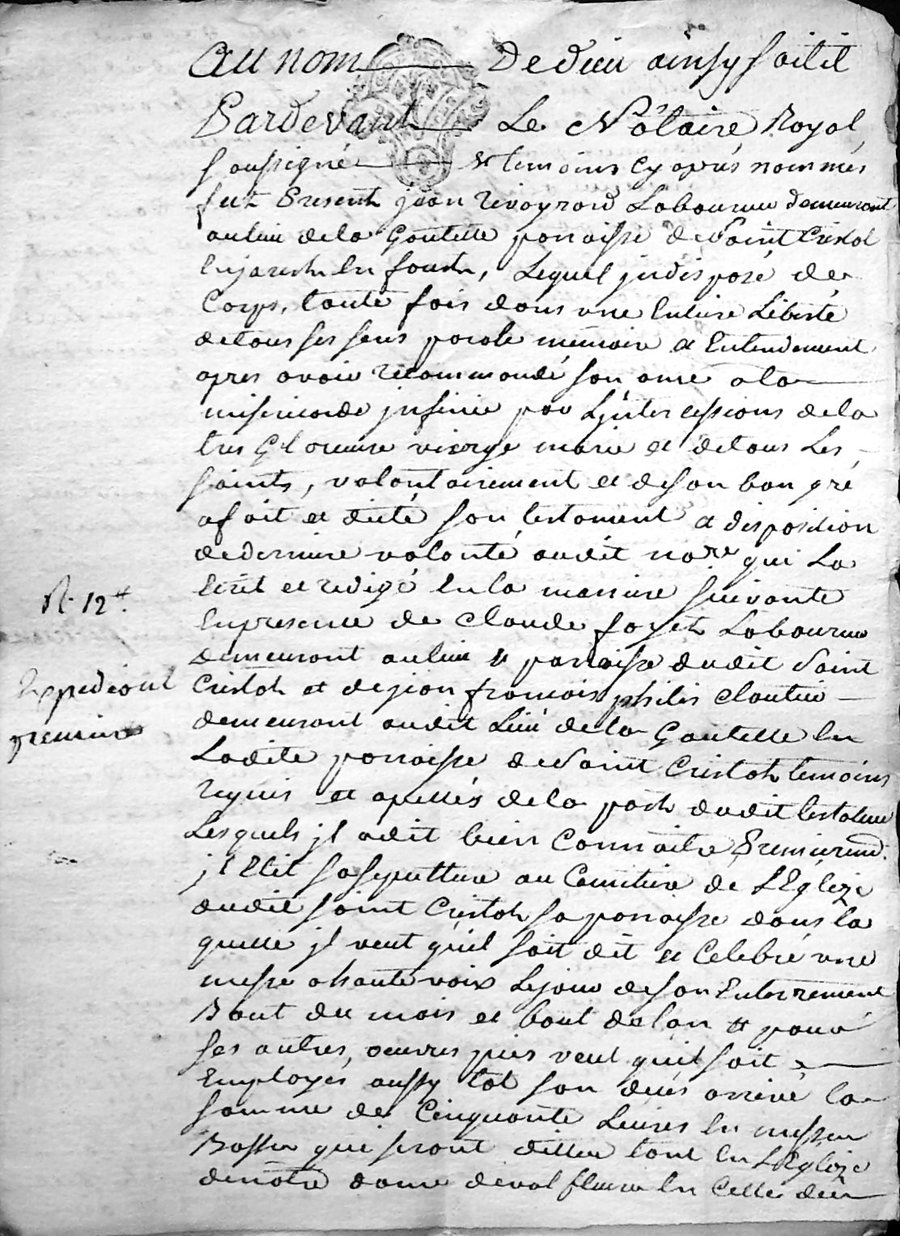 Au nom De dieu ainsy soit il
Pardevant Le Notaire Royal
soussigné & temoins cy aprés nommés
fut Present jean revoyrard Laboureur demeurant
au lieu de la Goutette parroisse de Saint Cristol
en jarest en forest, Lequel jndisposé de
Corps, toute fois dans une Entiere Liberté
de tous ses sens parole memoire et Entendement
apres avoir recommandé son ame a la
misericorde jnfinie par Ljntercessions de la
tres Glorieuse vierge marie et de tous Les
saints, volontairement et de son bon gré
a fait et dicté son testament et disposition
de derniere volonté audit no.re qui La
Ecrit et redigé En la maniere suivante
En presence de Claude fayet Laboureur
demeurant au lieu & parroisse dudit Saint
Cristoh et de jean francois philis cloutier
demeurant audit Lieu de la Goutette En
Ladite parroisse de Saint Cristoh temoins
requis et apellés de la part dudit testateur
Lesquels jl a dit bien Connaitre Premierem.t
jl Elit sa sepulture au Cimitiere de L'Eglize
dudit saint Cristoh sa parroisse dans la
quelle jl veut qu'il soit dit et Celebré une
messe a haute voix Le jour de son Enterrement
Bout du mois et bout de lan & pour
ses autres oeuvres pies veut qu'il soit
Employés aussy tot son déces arrivé la
somme de Cinquante Livres En messes
Basses qui seront dittes tant En L'Eglize
de notre dame de val fleurie En Celles des
R. 12.#
Expedié ont
premiere